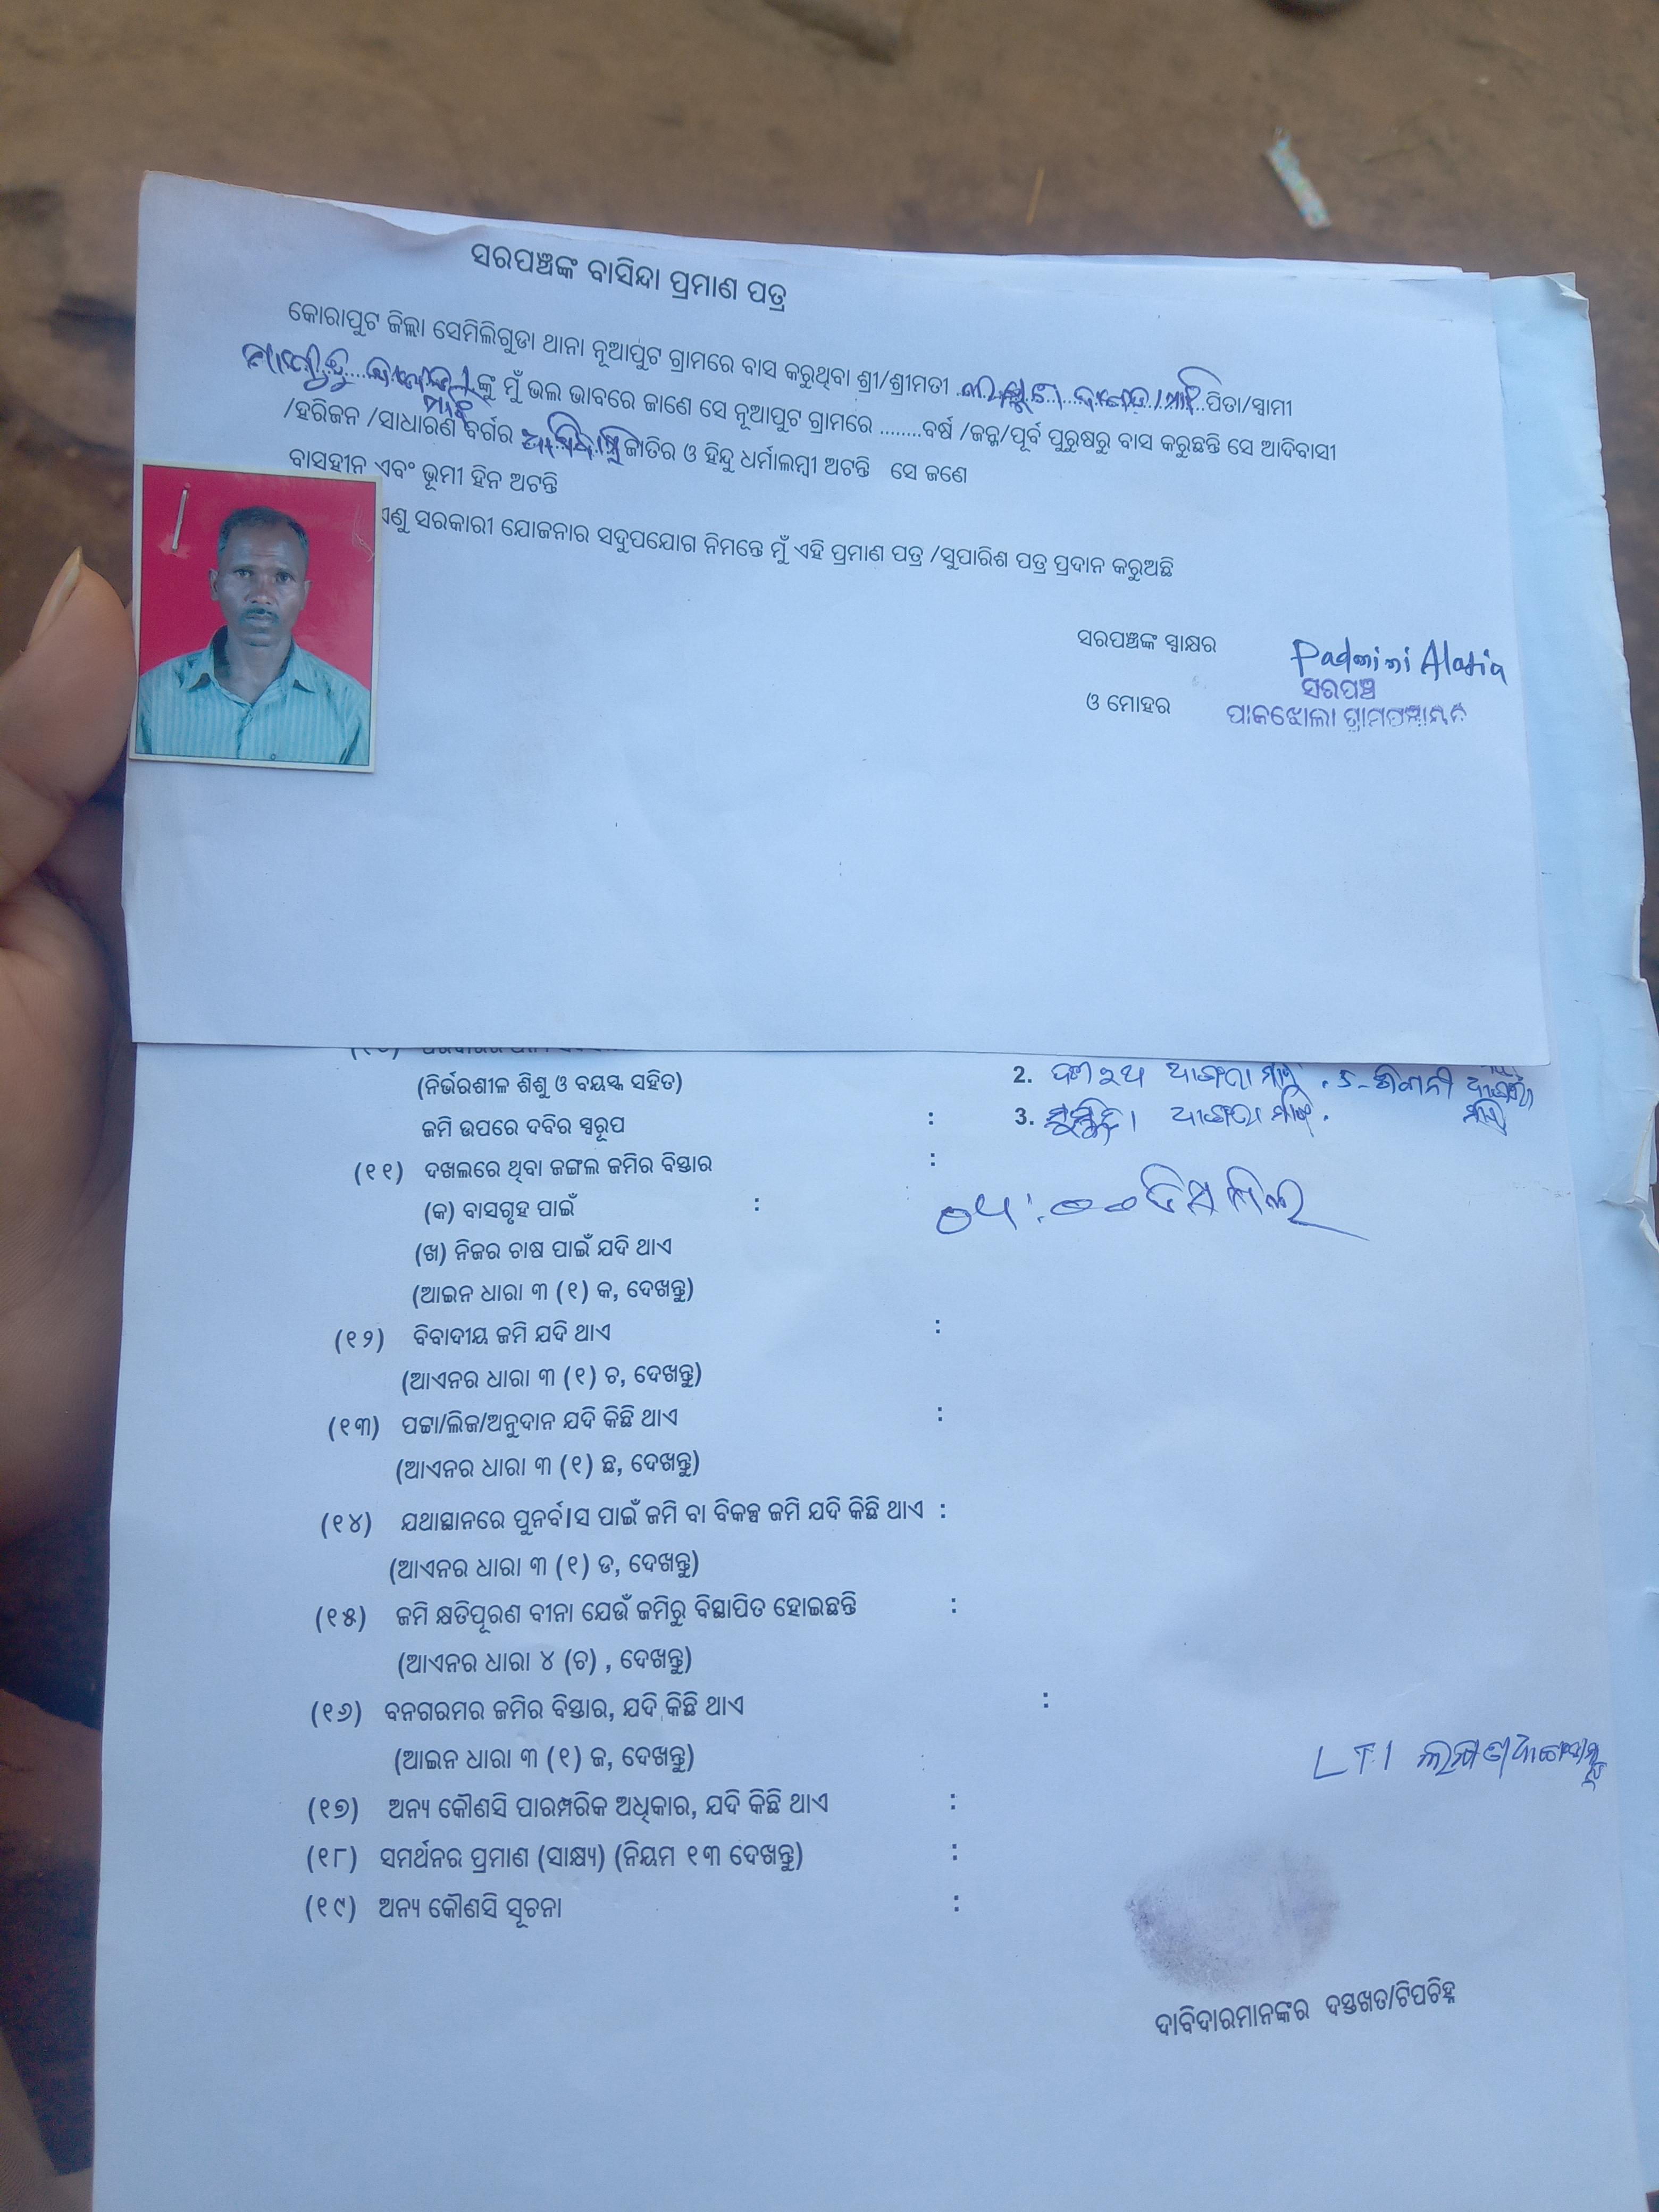 ସରପଞ୍ଚଙ୍କ ବାସିନ୍ଦା ପ୍ରମାଣ ପତ୍ର
କୋରାପୁଟ ଜିଲ୍ଲା ସେମିଲିଗୁଡା ଥାନା ନୂଆପୁଟ ଗ୍ରାମରେ ବାସ କରୁଥିବା ଶ୍ରୀ/ଶ୍ରୀମତୀ ପିତା/ସ୍ୱାମୀ
ଙ୍କୁ ମୁଁ ଭଲ ଭାବରେ ଜାଣେ ସେ ନୂଆପୁଟ ଗ୍ରାମରେ ........ବର୍ଷ /ଜନ୍ମ/ପୂର୍ବ ପୁରୁଷରୁ ବାସ କରୁଛନ୍ତି ସେ ଆଦିବାସୀ
/ହରିଜନ /ସାଧାରଣ ବର୍ଗର ଜାତିର ଓ ହିନ୍ଦୁ ଧର୍ମାଲମ୍ବୀ ଅଟନ୍ତି ସେ ଜଣେ
ବାସହୀନ ଏବଂ ଭୂମୀ ହିନ ଅଟନ୍ତି
ଏଣୁ ସରକାରୀ ଯୋଜନାର ସଦୁପଯୋଗ ନିମନ୍ତେ ମୁଁ ଏହି ପ୍ରମାଣ ପତ୍ର /ସୁପାରିଶ ପତ୍ର ପ୍ରଦାନ କରୁଅଛି
ସରପଞ୍ଚଙ୍କ ସ୍ୱାକ୍ଷର Padmini
ସରପଞ୍ଚ
ଓ ମୋହର ପାକଝୋଲା ଗ୍ରାମପଞ୍ଚାୟତ
(ନିର୍ଭରଶୀଳ ଶିଶୁ ଓ ବୟସ୍କ ସହିତ) 2.
ଜମି ଉପରେ ଦବିର ସ୍ୱରୂପ : 3.
(୧୧) ଦଖଲରେ ଥିବା ଜଙ୍ଗଲ ଜମିର ବିସ୍ତାର :
(କ) ବାସଗୃହ ପାଇଁ :
(ଖ) ନିଜର ଚାଷ ପାଇଁ ଯଦି ଥାଏ
(ଆଇନ ଧାରା ୩ (୧) କ, ଦେଖନ୍ତୁ)
(୧୨) ବିବାଦୀୟ ଜମି ଯଦି ଥାଏ :
(ଆଏନର ଧାରା ୩ (୧) ଚ, ଦେଖନ୍ତୁ)
(୧୩) ପଟ୍ଟା/ଲିଜ/ଅନୁଦାନ ଯଦି କିଛି ଥାଏ :
(ଆଏନର ଧାରା ୩ (୧) ଛ, ଦେଖନ୍ତୁ)
(୧୪) ଯଥାସ୍ଥାନରେ ପୁନର୍ବାସ ପାଇଁ ଜମି ବା ବିକଳ୍ପ ଜମି ଯଦି କିଛି ଥାଏ :
(ଆଏନର ଧାରା ୩ (୧) ଡ, ଦେଖନ୍ତୁ)
(୧୫) ଜମି କ୍ଷତିପୂରଣ ବୀନା ଯେଉଁ ଜମିରୁ ବିସ୍ଥାପିତ ହୋଇଛନ୍ତି :
(ଆଏନର ଧାରା ୪ (ଚ) , ଦେଖନ୍ତୁ)
(୧୬) ବନଗରମର ଜମିର ବିସ୍ତାର, ଯଦି କିଛି ଥାଏ :
(ଆଇନ ଧାରା ୩ (୧) ଜ, ଦେଖନ୍ତୁ) LTI
(୧୭) ଅନ୍ୟ କୌଣସି ପାରମ୍ପରିକ ଅଧିକାର, ଯଦି କିଛି ଥାଏ :
(୧୮) ସମର୍ଥନର ପ୍ରମାଣ (ସାକ୍ଷ୍ୟ) (ନିୟମ ୧୩ ଦେଖନ୍ତୁ) :
(୧୯) ଅନ୍ୟ କୌଣସି ସୂଚନା :
ଦାବିଦାରମାନଙ୍କର ଦସ୍ତଖତ/ଟିପଚିହ୍ନ